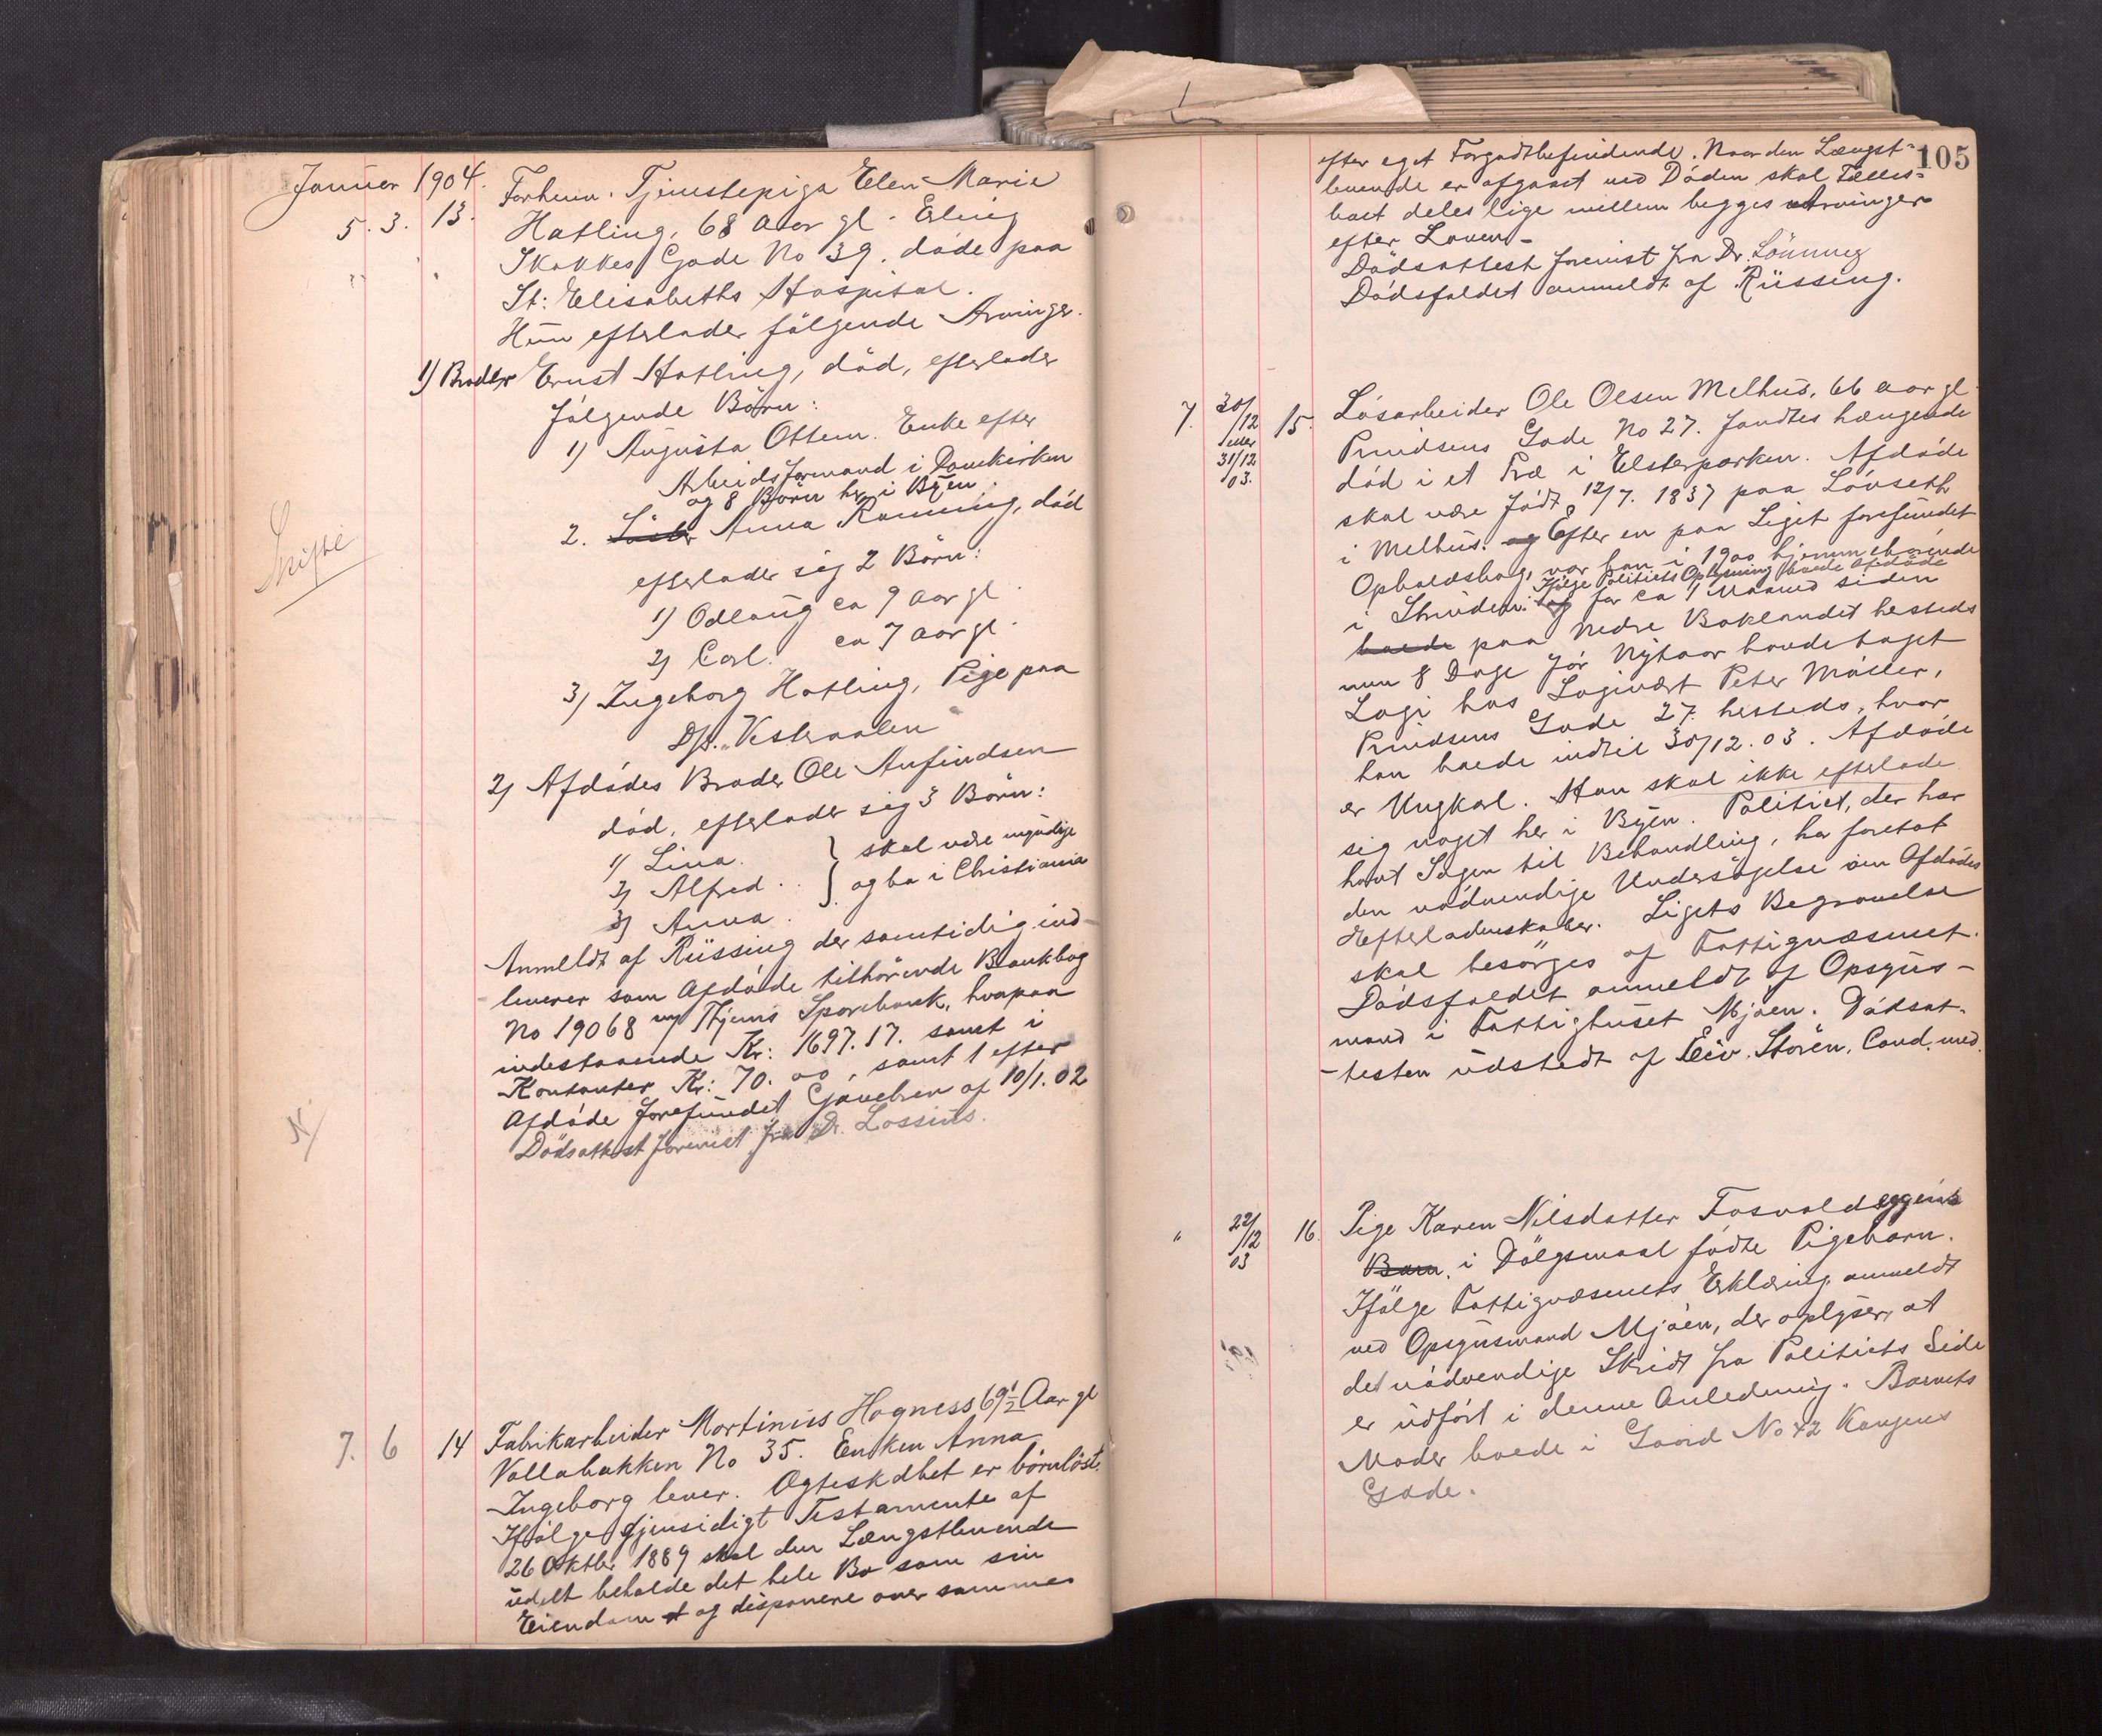 Januar 1904.
5. 3. 13. Forhenv. Tjenestepige Elen Marie
Hatling, 68 Aar gl. Erling
Skakkes Gade No 39. døde paa
St: Elisabeths Hospital.
Hun efterlader følgende Arvinger.
1) Broder Ernst Hatling, død, efterlader
følgende Børn:
1) Augusta Ottem. Enke efter
Arbeidsformand i Domkirken
og 8 Børn her i Byen.
2. Anna Rønning, død
efterlader sig 2 Børn:
1) Odlaug ca 9 Aar gl.
2) Carl. ca 7 Aar gl.
3) Ingeborg Hatling, Pige paa
D/s. "Vesteraalen"
2) Afdødes Broder Ole Anfindsen
død, efterlader sig 3 Børn:
1) Lina.
2) Alfred.
3) Anna.
skal være myndige
og bo i Christiania
Skifte
Anmeldt af Rüssing der samtidig ind-
leverer som Afdøde tilhørende Bankbog
No 19068 m/ Thjems Sparebank, hvorpaa
indestaaende Kr: 1697.17. samt i
Kontanter Kr: 70.00, samt 1 efter
Afdøde forefundet Gavebrev af 10/1.02
Dødsattest forevist fra Dr. Lossius.
N/
7. 6 14 Fabrikarbeider Martinius Hogness 69½ Aar gl
Vollabakken No 35. Enken Anna
Ingeborg lever. Ægteskabet er børnløst.
Ifølge gjensidigt Testamente af
26 Oktbr. 1889 skal den Længstlevende
udelt beholde det hele Bo som sin
Eiendom og disponere over sammes
105
efter eget Forgodtbefindende. Naar den Længst-
levende er afgaaet ved Døden skal Fælles-
boet deles lige mellem begges Arvinger
efter Loven -
Dødsattest forevist fra Dr. Lønning
Dødsfaldet anmeldt af Rüssing.
7. 30/12 eller 31/12 03. 15. Løsarbeider Ole Olsen Melhus, 66 Aar gl.
Prindsens Gade No 27. fandtes hængende
død i et Træ i Elsterparken. Afdøde
skal være født 12/7. 1837 paa Løvseth
i Melhus. og Efter en paa Liget forefundet
Opholdsbog, var han i 1900 hjemmehørende
i Strinden. Ifølge Politiets Oplysning boede Afdøde
for ca 1 Maaned siden
boede paa Nedre Baklandet hersteds
men 8 Dage før Nytaar havde taget
Logi hos Logivært Peter Møller,
Prindsens Gade 27 hersteds, hvor
han boede indtil 30/12.03. Afdøde
er Ungkarl. Han skal ikke efterlade
sig noget her i Byen. Politiet, der har
havt Sagen til Behandling, har foretat
den nødvendige Undersøgelse om Afdødes
Efterladenskaber. Ligets Begravelse
skal besørges af Fattigvæsenet.
Dødsfaldet anmeldt af Opsyns-
mand i Fattighuset Mjøen. Dødsat-
-testen udstedt af Eiv. Støren, Cand. med.
" 22/12 03 16. Pige Karen Nilsdatter Fosvoldeggens
Barn i Dølgsmaal fødte Pigebarn.
Ifølge Fattigvæsenets Erklæring anmeldt
ved Opsynsmand Mjøen, der oplyser, at
det nødvendige Skridt fra Politiets Side
er udført i denne Anledning. Barnets
Moder boede i Gaard No 42 Kongens
Gade.